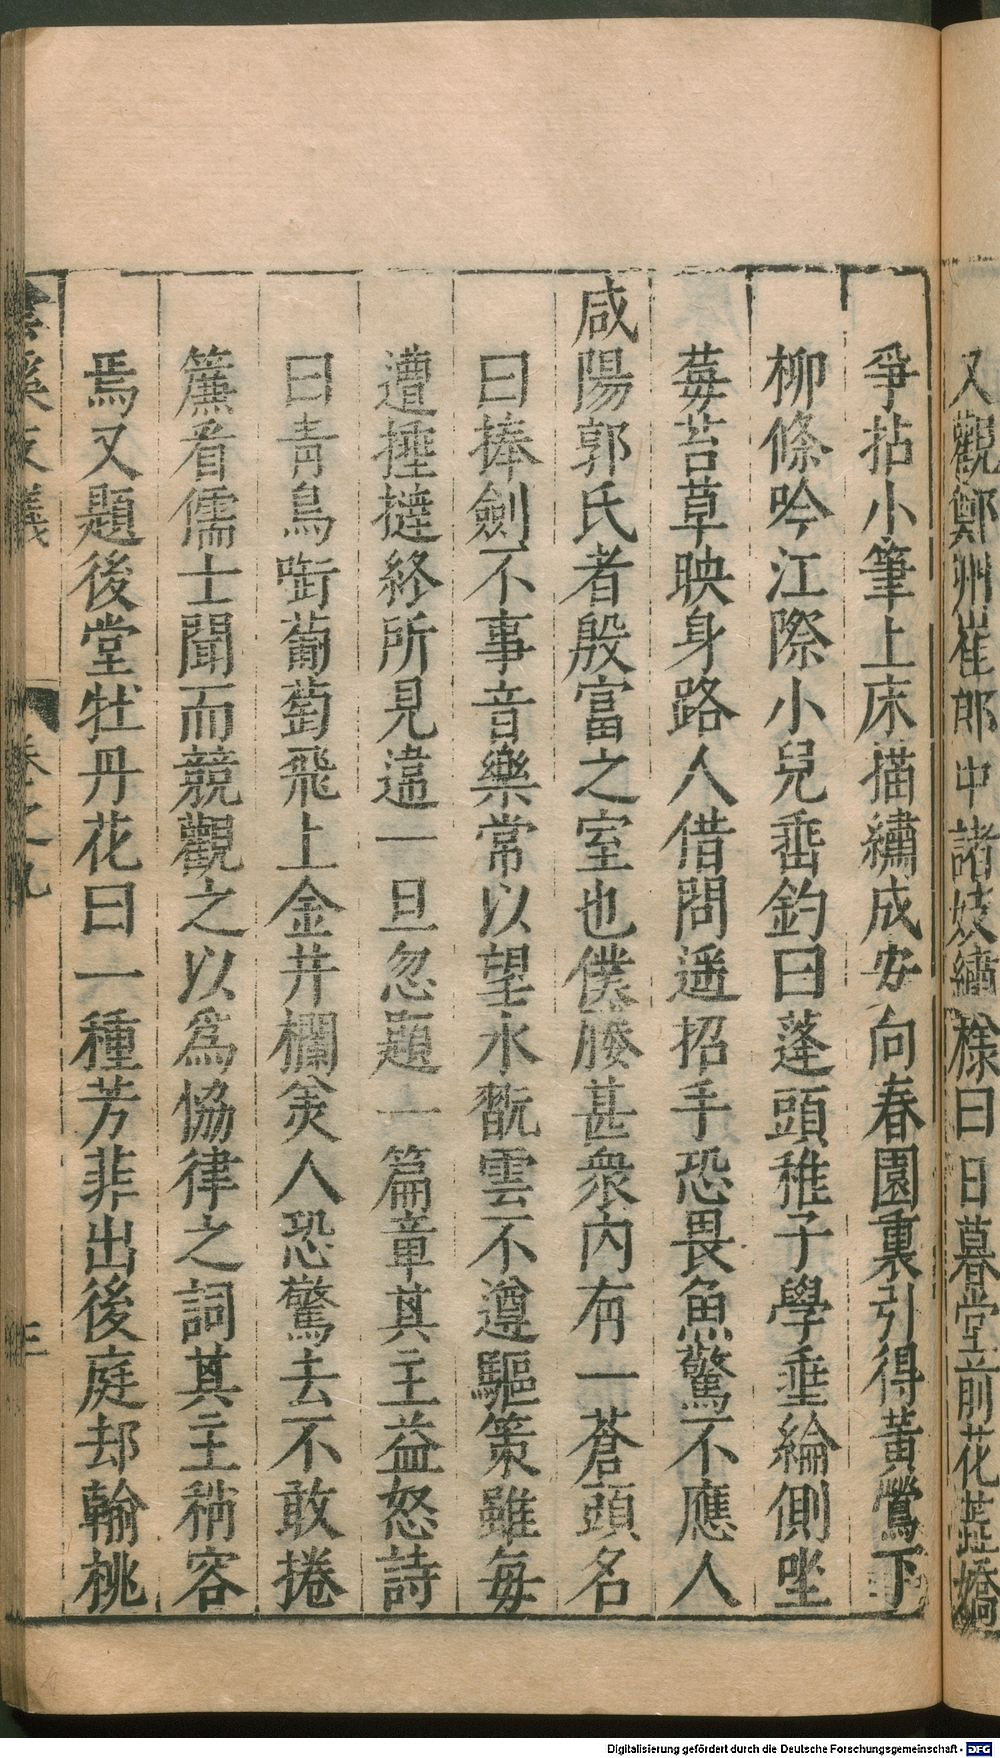 又觀鄭州崔郎中諸妓繡樣曰日暮堂前花蕋嬌
爭拈小筆上床描繡成安向春園裏引得黃鶯下
柳條吟江際小兒垂釣曰蓬頭稚子學垂綸側坐
莓苔草映身路人借問遥招手恐畏魚驚不應人
咸陽郭氏者殷富之室也僕媵甚衆內有一蒼頭名
曰捧劍不事音樂常以望水翫雲不遵驅策雖每
遭捶撻終所見違一旦忽題一篇章其主益怒詩
曰青鳥啣葡萄飛上金井欄美人恐驚去不敢捲
簾看儒士聞而競觀之以爲協律之詞其主稍容
焉又題後堂牡丹花曰一種芳菲出後庭却輸桃
雲溪友議 卷之九 三
Digitalisierung gefördert durch die Deutsche Forschungsgemeinschaft - DFG